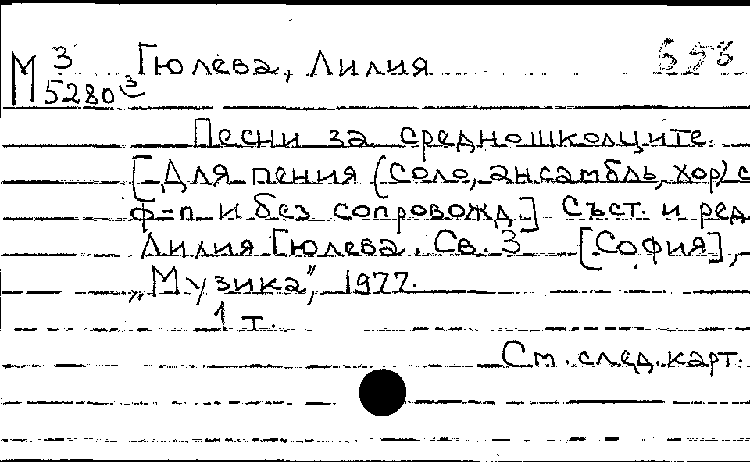 М 3 Гюлева, Лилия
5280 3
Песни за средношколците.
[Для пения (соло, ансамбль, хор) с
ф-п и без сопровожд.] Съст. и ред.
Лилия Гюлева. Св. 3 [София],
„Музика”, 1977.
1 т.
См. след. карт.